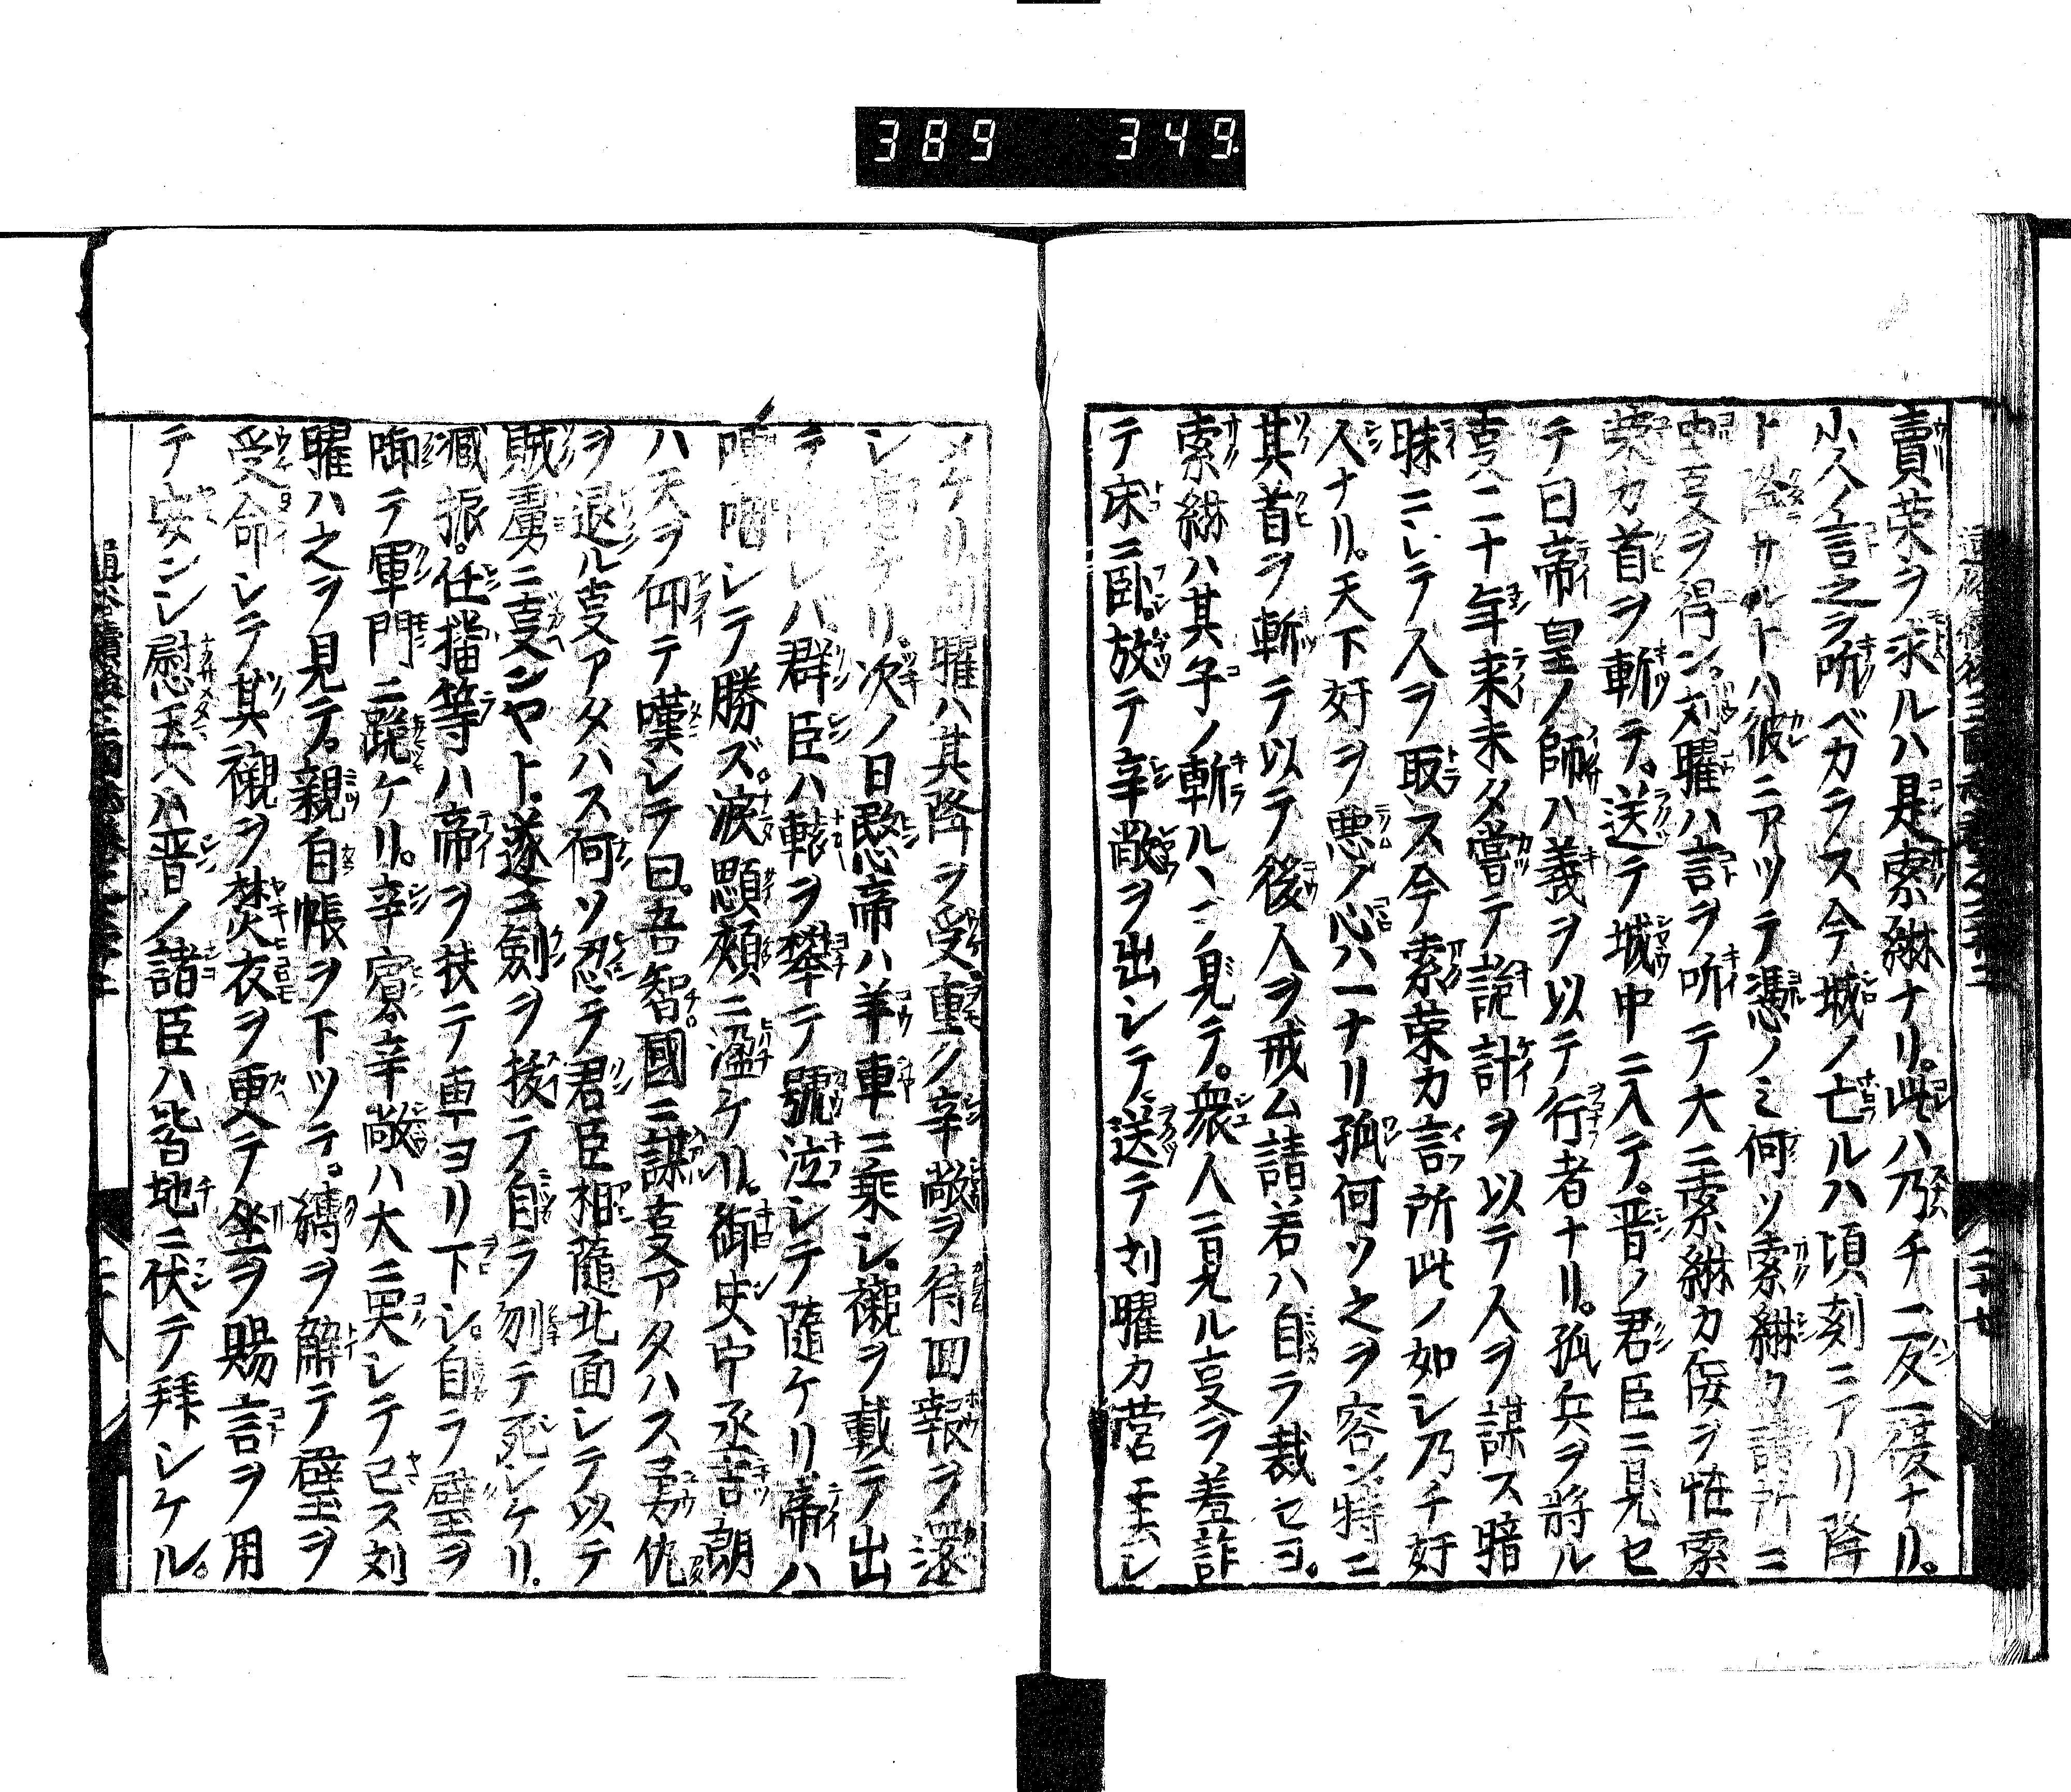 389 349
賣荣ヲ求ルハ是索綝ナリ。此ハ乃チ一反一覆ナリ。
小人ノ言之ヲ听ベカラス今城ノ亡ルハ頃刻ニアリ降
ト降サルトハ彼ニアツテ憑ノミ何ソ索綝ク請所ニ
中㕝ヲ得ン。刘曜ハ言ヲ听テ大ニ索綝カ侫ヲ怪索
荣カ首ヲ斬テ。送テ城中ニ入テ。晋ノ君臣ニ見セ
テ曰帝皇ノ師ハ義ヲ以テ行者ナリ。孤兵ヲ將ル
㕝二十年来未タ嘗テ詭計ヲ以テ人ヲ謀ス暗
昧ニシテ人ヲ取ス今索荣カ言所此ノ如シ乃チ奸
人ナリ。天下奸ヲ悪ノ心ハ一ナリ孤何ソ之ヲ容ン。特ニ
其首ヲ斬テ以テ後人ヲ戒ム請君ハ自ラ裁セヨ。
索綝ハ其子ノ斬ルヽヲ見テ。衆人ニ見ル㕝ヲ羞詐
テ床ニ卧。放テ辛敞ヲ出シテ送テ刘曜カ营ニ至シ
メケリ刘曜ハ其降ヲ受重ク辛敞ヲ待回報ヲ還
シ
次ノ日愍帝ハ羊車ニ乗シ。襯ヲ載テ出
テ降レバ。群臣ハ轅ヲ攀テ號泣シテ隨ケリ帝ハ
シテ勝ズ。涙顋頰ニ溢ケリ。御史中丞吉朗
ハ天ヲ仰テ嘆シテ曰。吾智國ニ謀㕝アタハス勇仇
ヲ退ル㕝アタハス何ソ忍テ君臣相隨北面シテ以テ
賊虜ニ㕝ンヤト。遂ニ劍ヲ拔テ自ラ刎テ死シケリ。
臧振。任播等ハ帝ヲ扶テ車ヨリ下シ自ラ璧ヲ
啣テ軍門ニ跪ケリ。辛賔辛敞ハ大ニ哭シテ已ス刘
曜ハ之ヲ見テ。親自帳ヲ下ツテ。縛ヲ解テ璧ヲ
受命シテ其襯ヲ焚衣ヲ更テ坐ヲ賜言ヲ用
テ安ンシ慰玉ヘハ晋ノ諸臣ハ皆地ニ伏テ拜シケル。